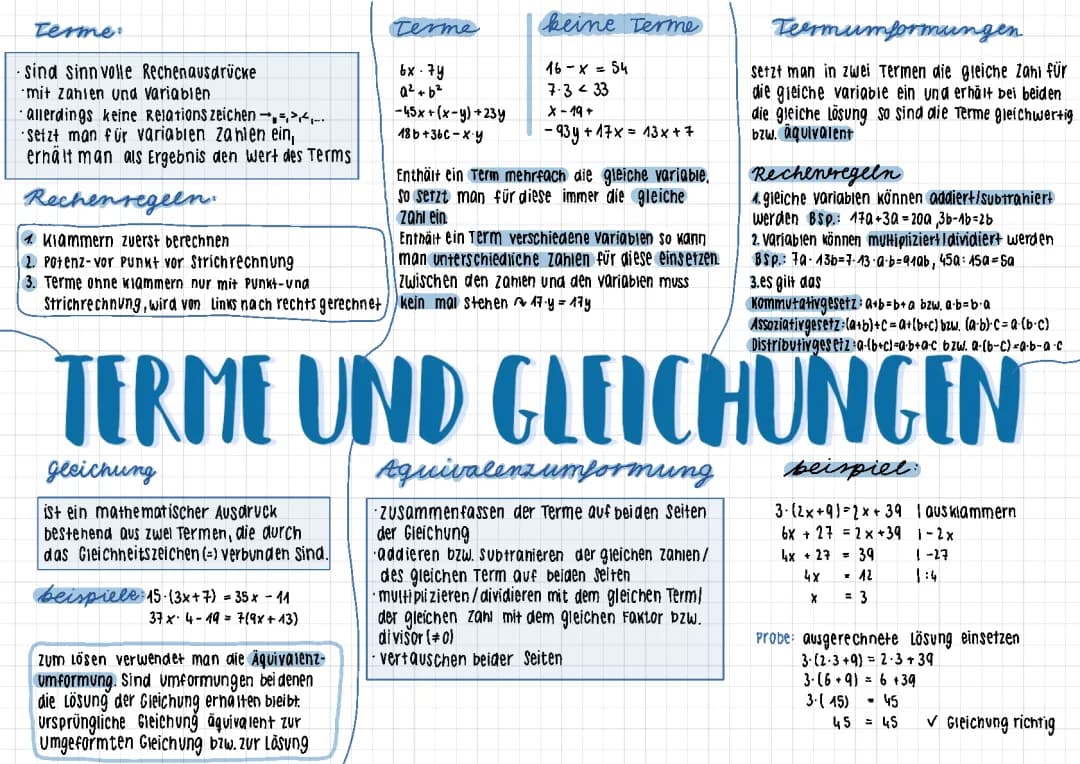 Terme:
· sind sinnvolle Rechenausdrücke
· mit Zahlen und Variablen
· allerdings keine Relationszeichen →,=,>,<,...
· setzt man für Variablen Zahlen ein,
erhält man als Ergebnis den Wert des Terms
Rechenregeln:
1. Klammern zuerst berechnen
2. Potenz- vor Punkt vor Strichrechnung
3. Terme ohne Klammern nur mit Punkt- und
Strichrechnung, wird von links nach rechts gerechnet
Terme
6x · 7y
a² + b²
-45x + (x-y) + 23y
18b + 36c - x·y
keine Terme
16 - x = 54
7·3 < 33
x - 19 +
- 93y + 17x = 13x + 7
Enthält ein Term mehrfach die gleiche Variable,
so setzt man für diese immer die gleiche
Zahl ein
Enthält ein Term verschiedene Variablen so kann
man unterschiedliche Zahlen für diese einsetzen
Zwischen den Zahlen und den Variablen muss
kein mal stehen ↷ 17·y = 17y
Termumformungen
setzt man in zwei Termen die gleiche Zahl für
die gleiche Variable ein und erhält bei beiden
die gleiche Lösung so sind die Terme gleichwertig
bzw. äquivalent
Rechenregeln
1. gleiche Variablen können addiert/subtrahiert
werden Bsp.: 17a+3a=20a, 3b-1b=2b
2. Variablen können multipliziert/dividiert werden
Bsp.: 7a·13b=7·13·a·b=91ab, 45a:15a=5a
3. es gilt das
Kommutativgesetz: a+b=b+a bzw. a·b=b·a
Assoziativgesetz: (a+b)+c=a+(b+c) bzw. (a·b)·c=a·(b·c)
Distributivgesetz: a·(b+c)=a·b+a·c bzw. a·(b-c)=a·b-a·c
TERME UND GLEICHUNGEN
Gleichung
ist ein mathematischer Ausdruck
bestehend aus zwei Termen, die durch
das Gleichheitszeichen (=) verbunden sind.
beispiele: 15·(3x+7) = 35x - 11
37x·4-19 = 7(9x+13)
Zum Lösen verwendet man die Äquivalenz-
umformung. Sind Umformungen bei denen
die Lösung der Gleichung erhalten bleibt.
ursprüngliche Gleichung äquivalent zur
umgeformten Gleichung bzw. zur Lösung
Äquivalenzumformung
· zusammenfassen der Terme auf beiden Seiten
der Gleichung
· addieren bzw. subtrahieren der gleichen Zahlen/
des gleichen Term auf beiden Seiten
· multiplizieren/dividieren mit dem gleichen Term/
der gleichen Zahl mit dem gleichen Faktor bzw.
divisor (≠0)
· vertauschen beider Seiten
beispiel:
3·(2x+9) = 2x + 39 | ausklammern
6x + 27 = 2x + 39 | -2x
4x + 27 = 39 | -27
4x = 12 | :4
x = 3
Probe: ausgerechnete Lösung einsetzen
3·(2·3+9) = 2·3+39
3·(6+9) = 6+39
3·(15) = 45
45 = 45 ✓ Gleichung richtig